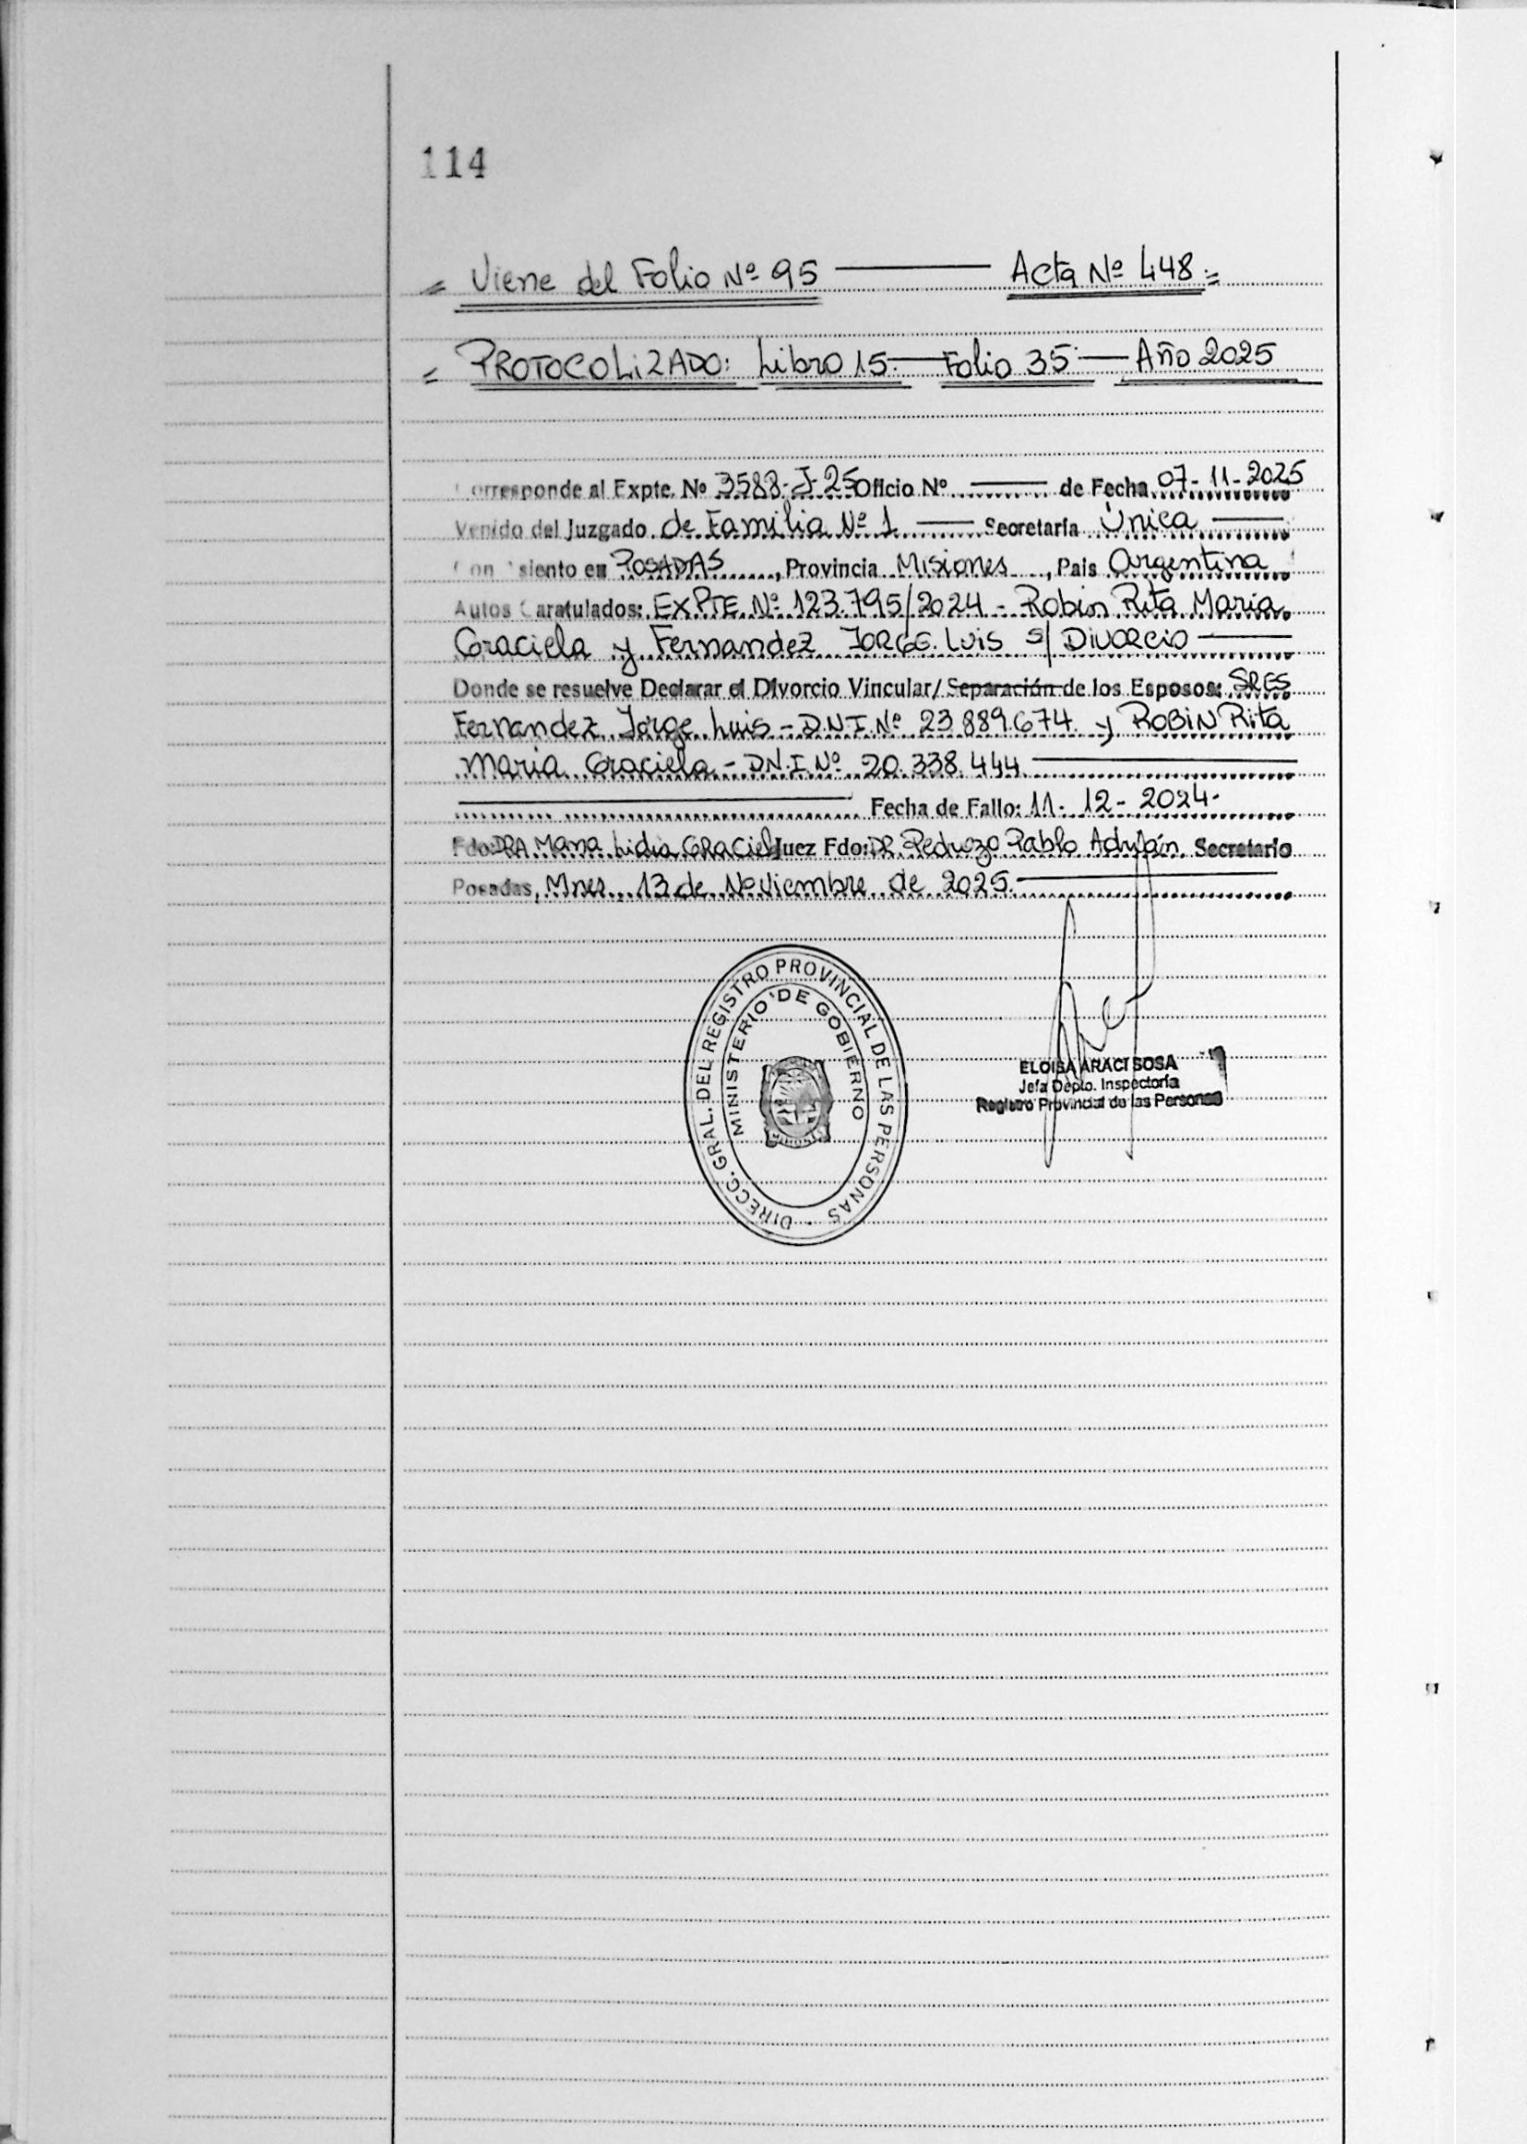 114
= Viene del Folio Nº 95 ——— Acta Nº 448.=
= PROTOCOLiZADO: Libro 15.— Folio 35.— Año 2025
Corresponde al Expte. Nº 3588-J-25 Oficio Nº ——— de Fecha 07-11-2025
Venido del Juzgado de Familia Nº 1 —— Secretaría Única ——
Con Asiento en POSADAS, Provincia Misiones, Pais Argentina
Autos Caratulados: EXPTE. Nº 123.795/2024 - Robin Rita Maria
Graciela y Fernandez JORGE Luis s/ DIVORCIO ———
Donde se resuelve Declarar el Divorcio Vincular/ Separación de los Esposos: SRES
Fernandez Jorge Luis - D.N.I. Nº 23.889.674. y ROBIN Rita
Maria Graciela - D.N.I. Nº 20.338.444 ———
——— Fecha de Fallo: 11-12-2024-
Fdo: DRA Lidia GRACiela Juez Fdo: DR. Pedrozo Pablo Adrián. Secretario
Posadas, Mnes., 13 de Noviembre de 2025. ———
DIRECC. GRAL. DEL REGISTRO PROVINCIAL DE LAS PERSONAS
MINISTERIO DE GOBIERNO
ELOISA ARACI SOSA
Jefa Depto. Inspectoría
Registro Provincial de las Personas